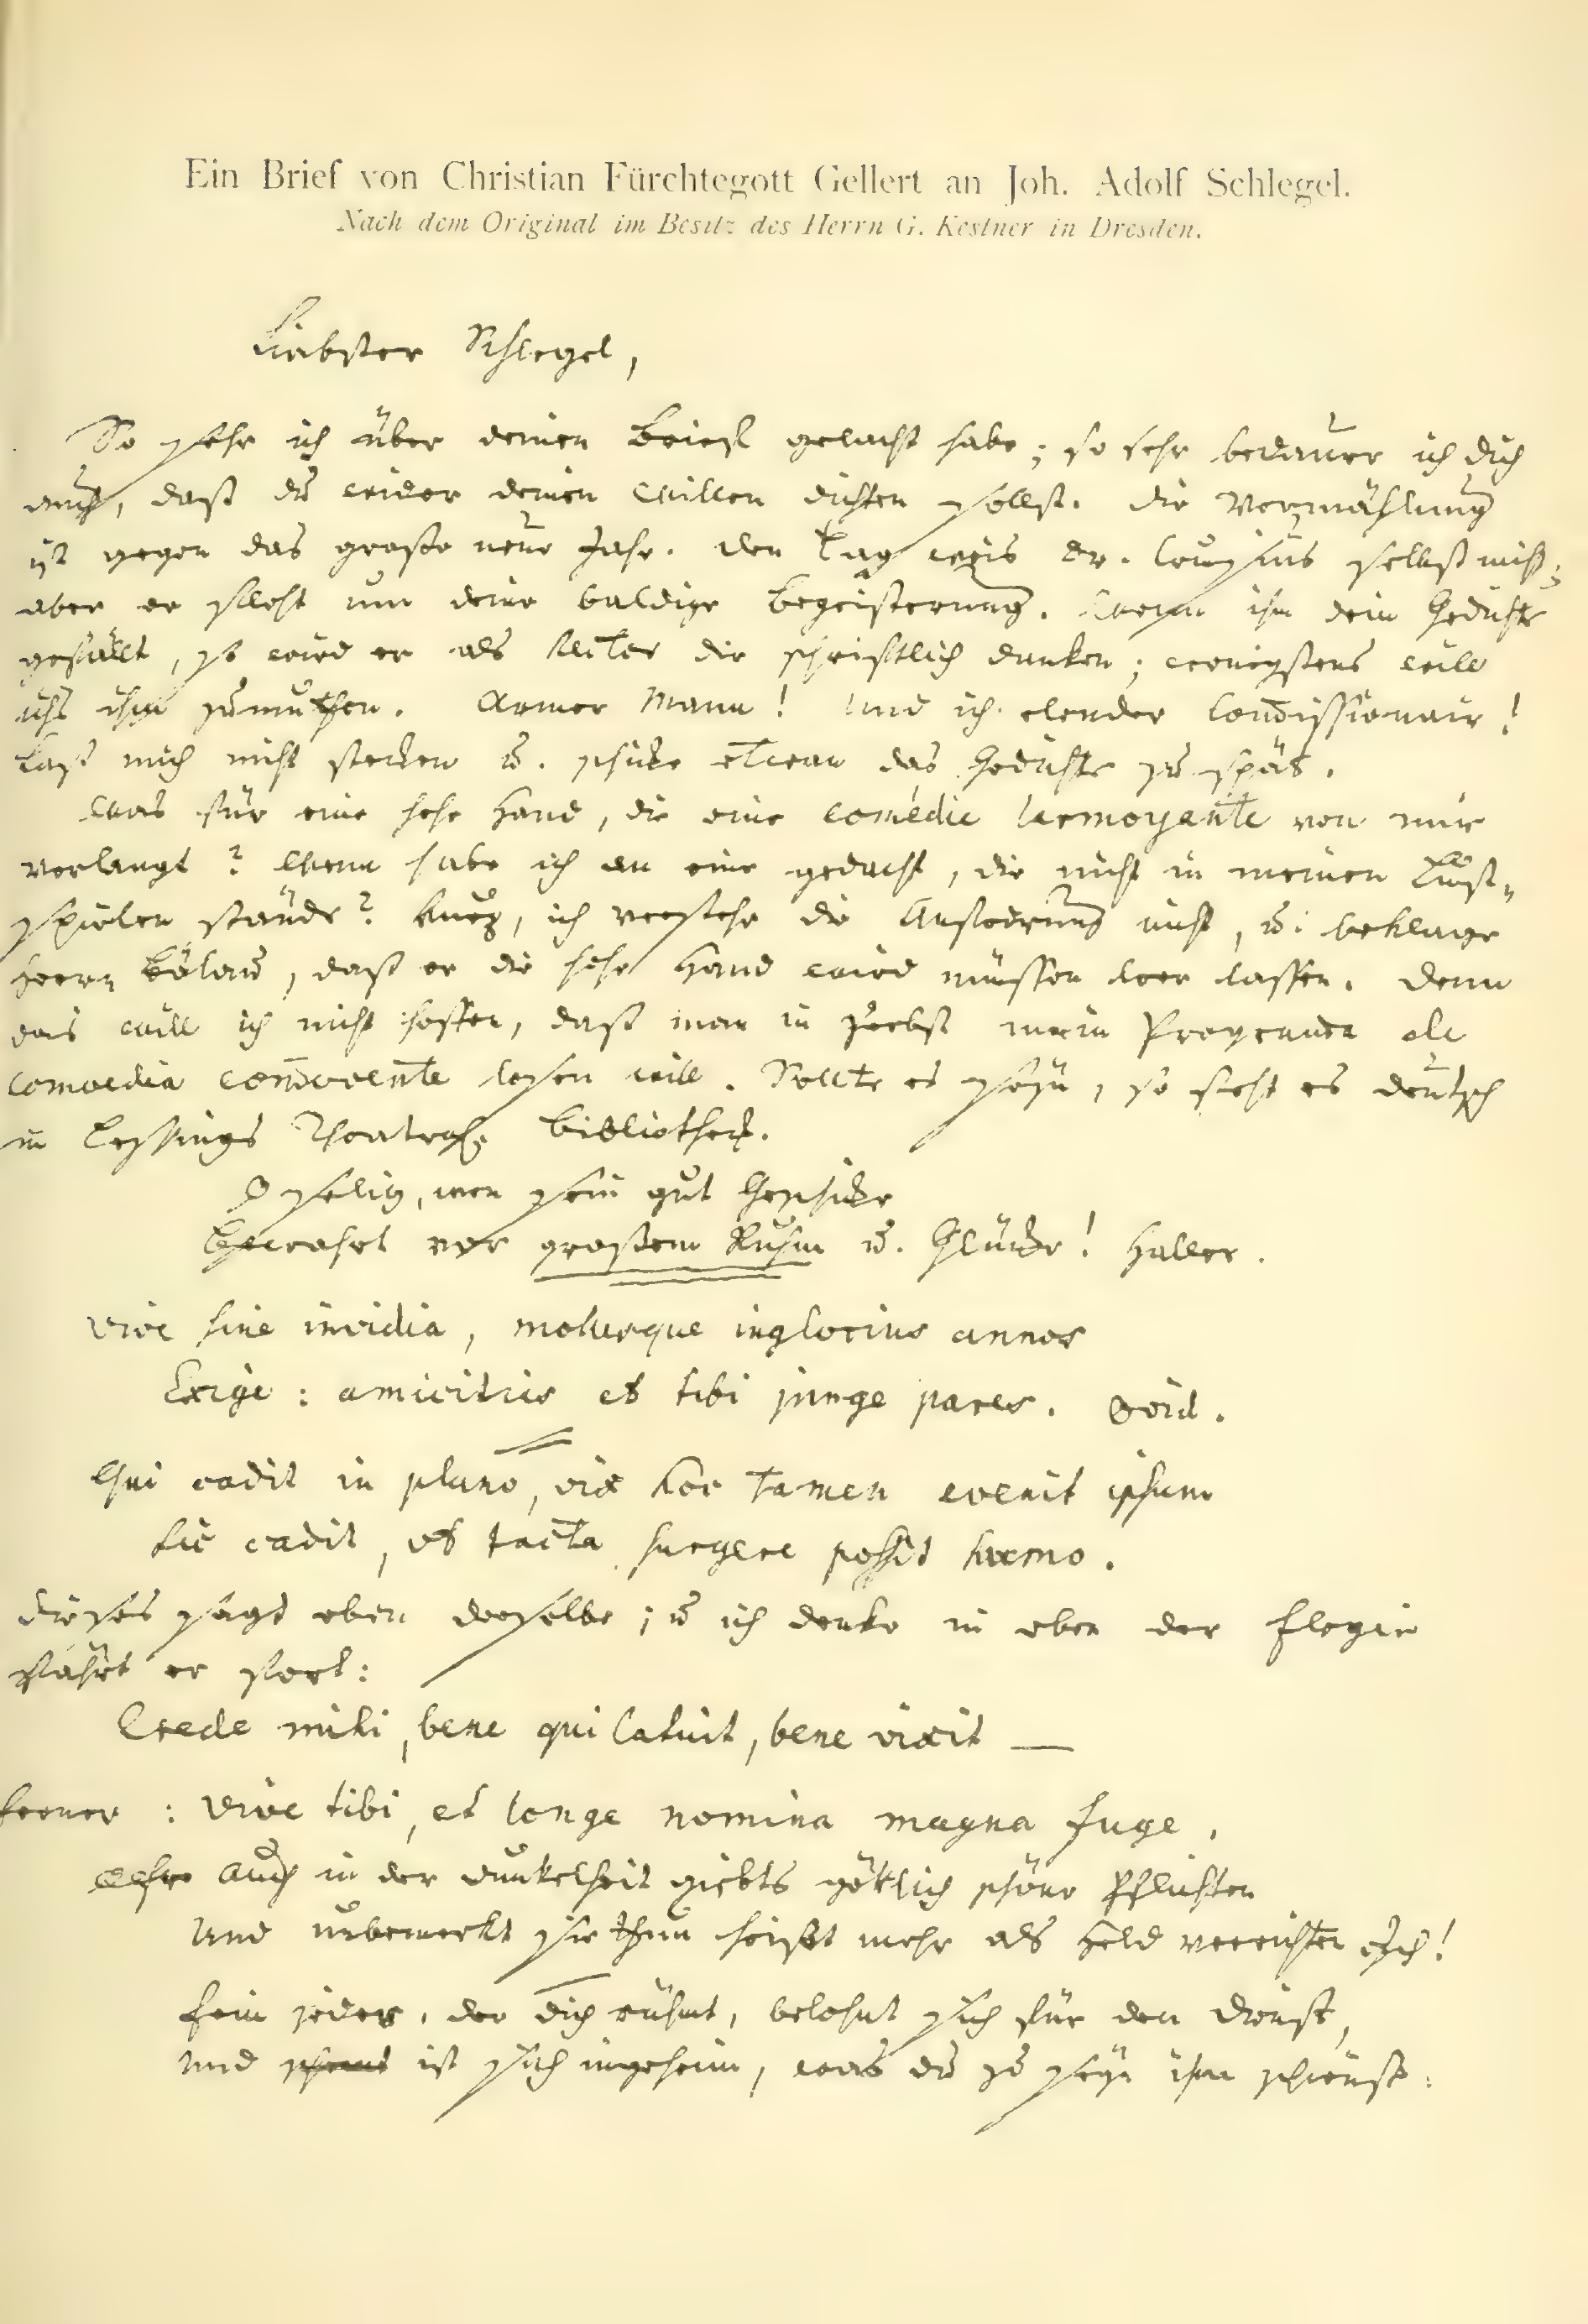 Ein Brief von Christian Fürchtegott Gellert an Joh. Adolf Schlegel.
Nach dem Original im Besitz des Herrn G. Kestner in Dresden.
Liebster Schlegel,
So sehr ich über deinen Brief gelacht habe; so sehr bedaure ich dich
auch, daß du wider deinen Willen dichten sollst. Die Vermählung
ist gegen das große neue Jahr. Den Tag weis Hr. selbst nicht;
aber er fleht um deine baldige Begeisterung. Wenn ihm dein Gedichte
gefällt, so wird er als dir schriftlich danken; wenigstens will
ichs ihm zumuthen. Armer Mann! Und ich elender Com̄issionair!
Laß mich nicht stecken u. schicke etwan das Gedichte zu spät.
Was für eine hohe Hand, die eine comédie larmoyante von mir
verlangt? Wenn habe ich an eine gedacht, die nicht in meinen Lust-
spielen stände? Kurz, ich verstehe die Anfoderung nicht, u. beklage
Herrn Bülau, daß er die hohe Hand wird müssen leer lassen. Denn
das will ich nicht hoffen, daß man in Zerbst mein Programma de
Comoedia com̄ovente lesen will. Sollte es seyn, so steht es deutsch
in Lessings Theatral. Bibliotheck.
O selig, wen sein gut Geschicke
Bewahrt vor großem Ruhm u. Glücke! Haller.
Vive sine invidia, mollesque inglorius annos
Exige: amicitias et tibi junge pares. Ovid.
Qui cadit in plano, vix hoc tamen evenit ipsum
Sic cadit, ut tacta surgere possit humo.
Dieses sagt eben derselbe; u ich denke in eben der Elegie
fährt er fort:
Crede mihi, bene qui latuit, bene vixit —
ferner : Vive tibi, et longe nomina magna fuge.
Auch in der Dunkelheit giebts göttlich schöne Pflichten
Und unbemerkt sie thun heißt mehr als Held verrichten
Ein jeder, der dich rühmt, belohnt sich für den Dienst,
und ist sich ingeheim, was du zu seyn ihm schienst: